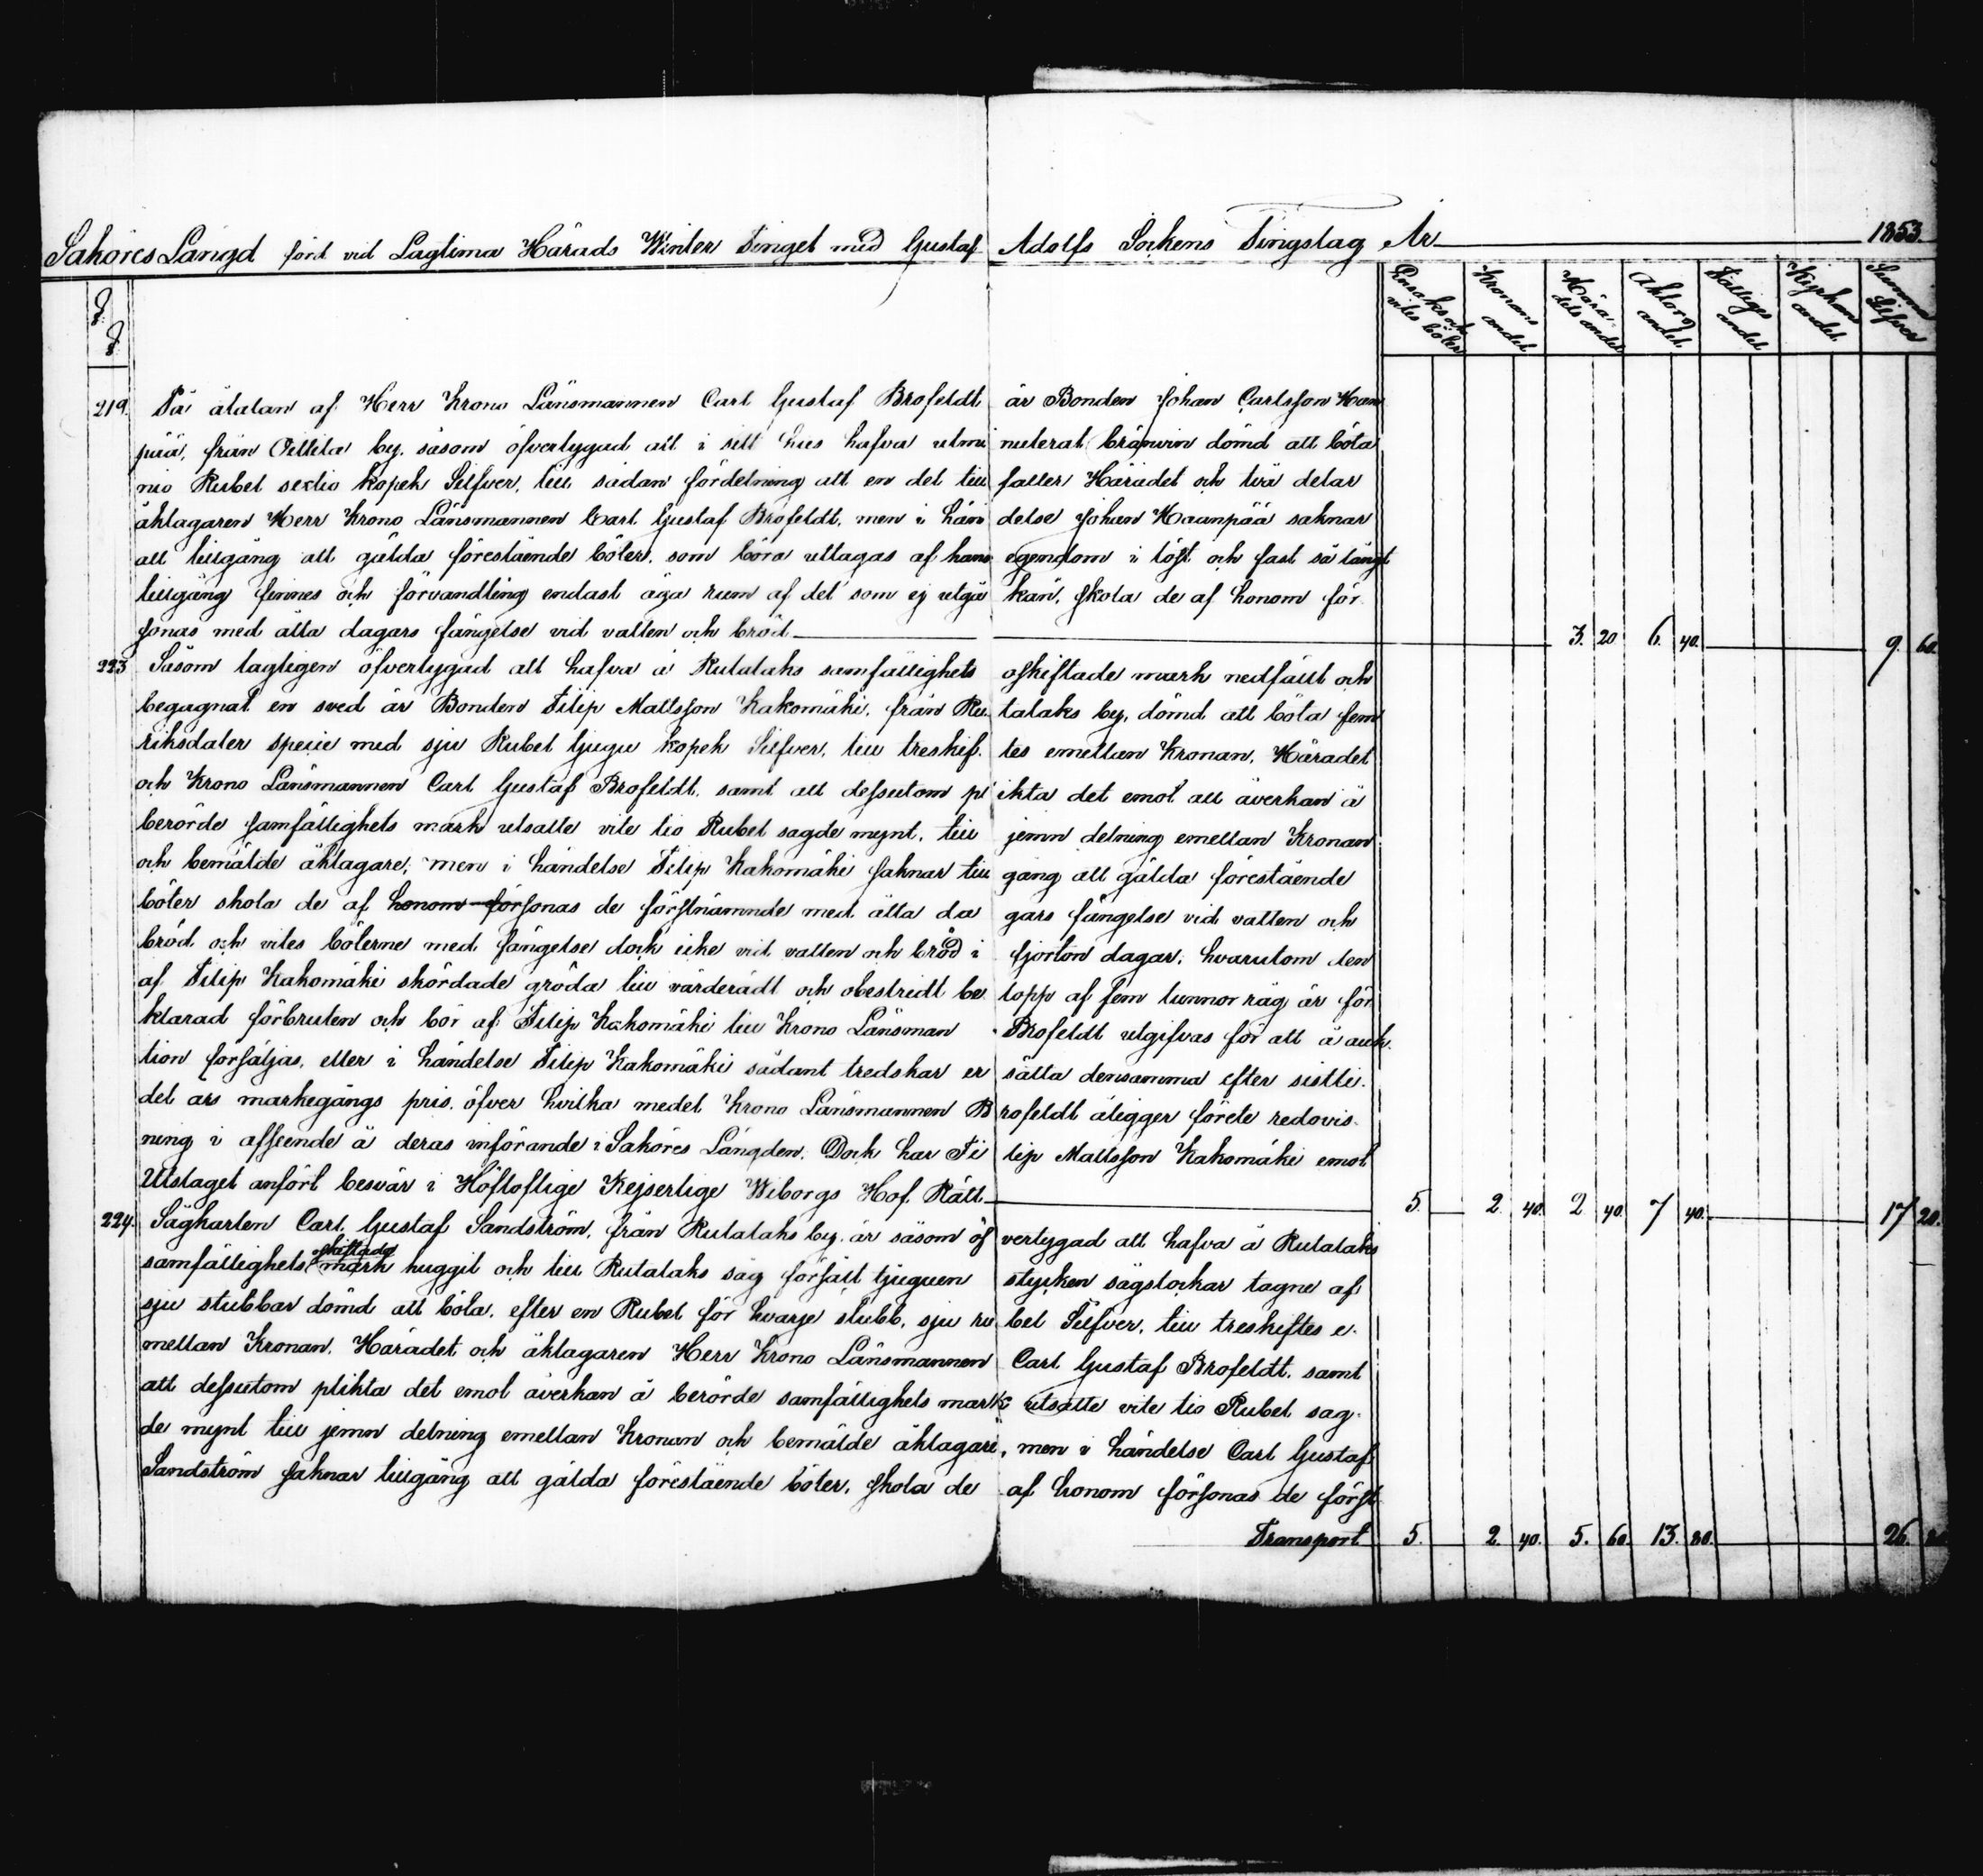 Sakören Längd förd vid Lagtima Härads Winter Tinget med Gustaf Adolfs Sockens Tingslag År 1853.
§ §
Ensaks och vites böter
Kronans andel
Häradets andel
Aktors andel.
Fattiges andel
Kyrkans andel.
Summa Silfver
219. På åtalan af Herr Krono Länsmannen Carl Gustaf Brofeldt är Bonden Johan Carlsson Haan
pää, från by. såsom öfvertygad att i sitt hus hafva utmi nuterat bränvin dömd att böta
nio Rubel sextio kopek Silfver, till sådan fördelning att en del till faller Häradet och två delar
åklagaren Herr Krono Länsmannen Carl Gustaf Brofeldt, men i hän delse Johan Haanpää saknar
all tillgång att gälda förestående böter, som böra uttagas af hans egendom i löst och fast så långt
tillgång finnes och förvandling endast äga rum af det som ej utgå kan, skola de af honom för
sonas med åtta dagars fängelse vid vatten och bröd 3. 20 6. 40. 9. 60.
223 Såsom lagligen öfvertygad att hafva å Rutalaks samfällighets oskiftade mark nedfällt och
begagnat en sved är Bonden Filip Mattsson Kakomäki, från Ru talaks by, dömd att böta fem
riksdaler specie med sju Rubel tjugu kopek Silfver, till treskif. tes emellan Kronan, Häradet
och Krono Länsmannen Carl Gustaf Brofeldt, samt att dessutom pl ikta det emot all åverkan å
berörde samfällighets mark utsatte vite tio Rubel sagde mynt, till jemn delning emellan Kronan
och bemälde åklagare; men i händelse Filip Kakomäki saknar till gång att gälda förestående
böter skola de af honom försonas de förstnämnde med åtta da gars fängelse vid vatten och
bröd och vites böterne med fängelse dock icke vid vatten och bröd i fjorton dagar, hvarutom den
af Filip Kakomäki skördade gröda till värderadt och obestridt be lopp af fem tunnor råg är för
klarad förbruten och bör af Filip Kakomäki till Krono Länsman Brofeldt utgifvas för att å auk.
tion försäljas, eller i händelse Filip Kakomäki sådant tredskar er sätta densamma efter sistli.
det års markegångs pris, öfver hvilka medel Krono Länsmannen B rofeldt åligger förete redovis.
ning i afseende å deras införande i Saköres Längden. Dock har Fi lip Mattsson Kakomäki emot
Utslaget anfört besvär i Höfloflige Kejserlige Wiborgs Hof. Rätt 5. 2. 40. 2 40. 7 40. 17 20.
224. Sågkarlen Carl Gustaf Sandström, från Rutalaks by. är såsom öf vertygad att hafva å Rutalaks
samfällighets oskiftade mark huggit och till Rutalaks såg försålt tjuguen stycken sågstockar tagne af
sju stubbar dömd att böta, efter en Rubel för hvarje stubb, sju ru bel Silfver, till treskiftes e.
mellan Kronan, Häradet och åklagaren Herr Krono Länsmannen Carl Gustaf Brofeldt, samt
att dessutom plikta det emot åverkan å berörde samfällighets mark utsatte vite tio Rubel sag.
de mynt till jemn delning emellan Kronan och bemälde åklagare, men i händelse Carl Gustaf
Sandström saknar tillgång att gälda förestående böter, skola de af honom försonas de först
Transport 5. 2. 40. 5. 60. 13. 80. 26. 80